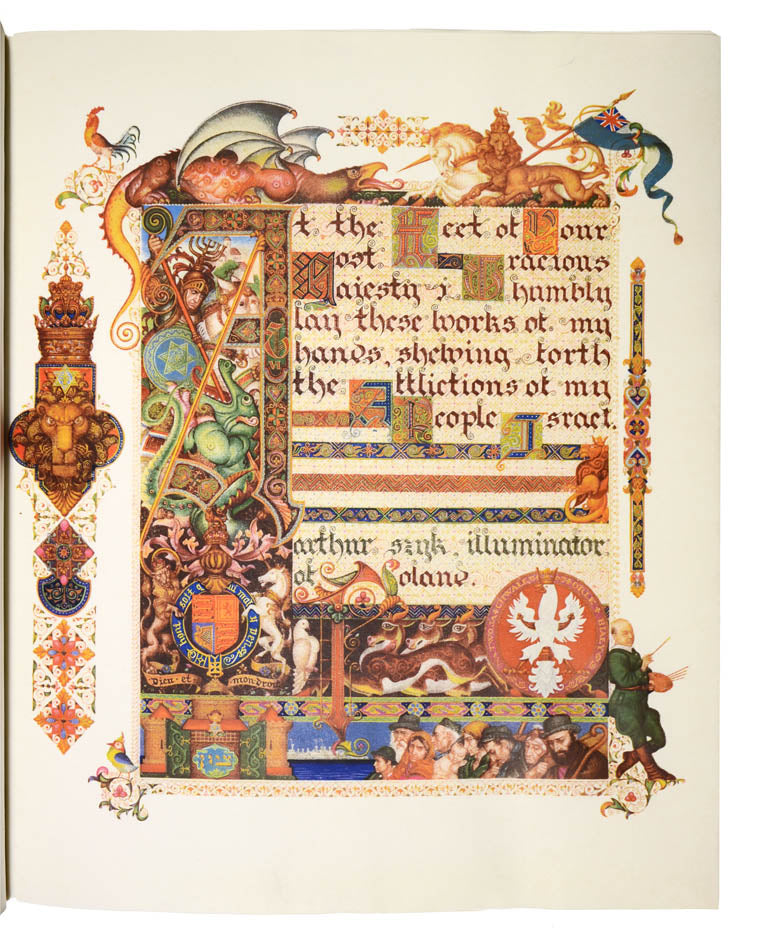 At the Feet of Your
Most Gracious
Majesty i humbly
lay these works of my
hands, shewing forth
the Afflictions of my
People Israel.
arthur szyk, illuminator
of Poland.
Dieu et mon droit